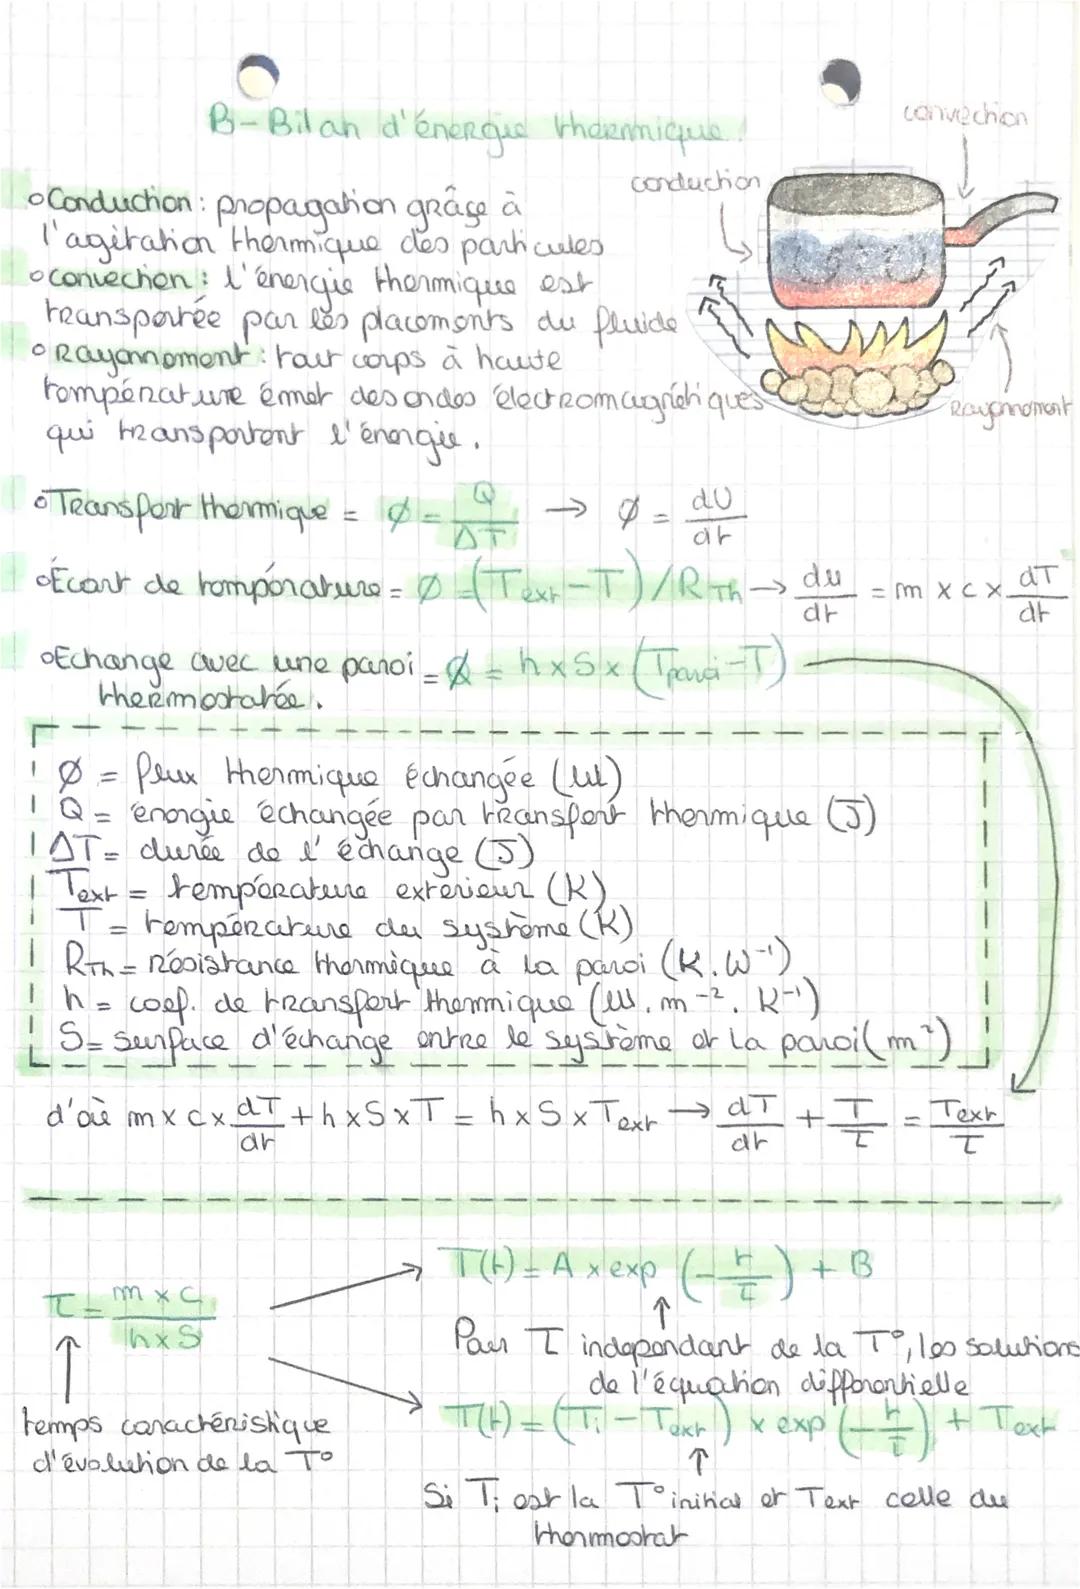 B-Bilan d'énergie thermique.
convection
conduction
Conduction : propagation grâce à
l'agitation thermique des particules
convection : l'énergie thermique est
transportée par les placements du fluide
Rayonnement : tout corps à haute
température émet des ondes électromagnétiques
qui transportent l'énergie.
Rayonnement
Transfert thermique = Ø = Q/ΔT → Ø = dU/dt
Écart de température = Ø = (Text - T)/RTh → du/dt = m x c x dT/dt
Echange avec une paroi = Ø = h x S x (Tparoi - T)
thermostatée.
Ø = flux thermique échangée (W)
Q = énergie échangée par transfert thermique (J)
ΔT = durée de l'échange (J)
Text = température extérieur (K)
T = température du système (K)
RTh = résistance thermique à la paroi (K.W⁻¹)
h = coef. de transfert thermique (W.m⁻².K⁻¹)
S = surface d'échange entre le système et la paroi (m²)
d'où m x c x dT/dt + h x S x T = h x S x Text → dT/dt + T/τ = Text/τ
T(t) = A x exp (-t/τ) + B
τ = m x c / h x S
Pour τ indépendant de la T°, les solutions
de l'équation différentielle
T(t) = (Ti - Text) x exp (-t/τ) + Text
temps caractéristique
d'évolution de la T°
Si Ti est la T° initial et Text celle du
thermostat